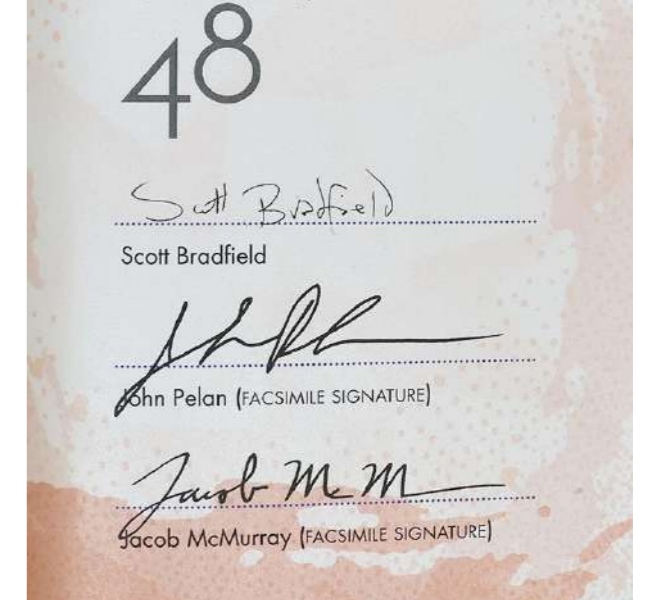 48
Scott Bradfield
Scott Bradfield
John Pelan
John Pelan (FACSIMILE SIGNATURE)
Jacob McM
Jacob McMurray (FACSIMILE SIGNATURE)